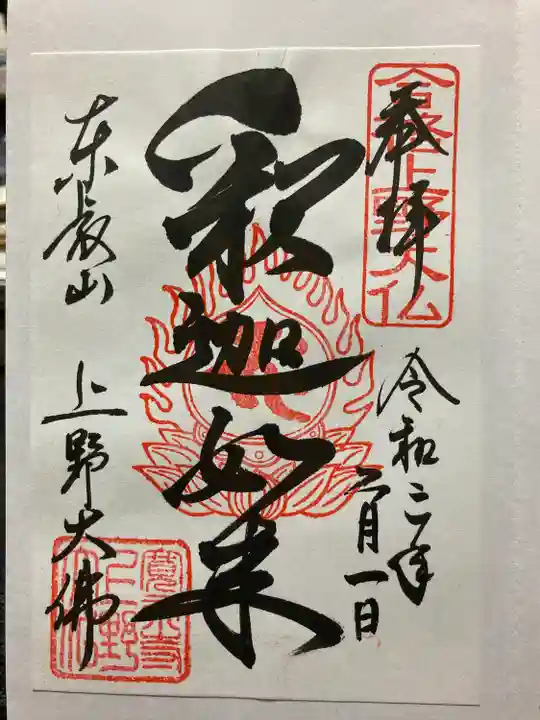 奉拝
合格上野大仏
令和三年
二月一日
釈迦如来
東叡山 上野大佛
寛永寺
上野